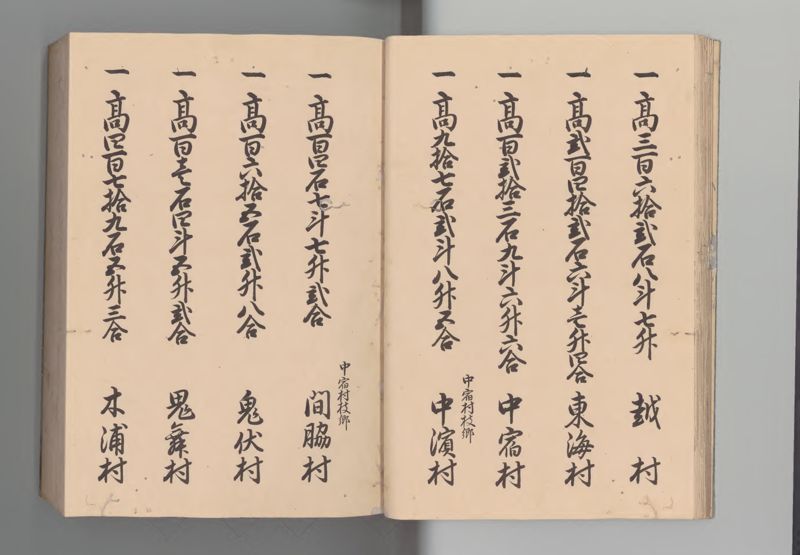 一 高三百六拾弐石八斗七升 越村
一 高弐百四拾弐石六斗壱升四合 東海村
一 高百弐拾三石九斗六升六合 中宿村
中宿村枝郷
一 高九拾七石弐斗八升五合 中濱村
中宿村枝郷
一 高百四石七斗七升弐合 間脇村
一 高百六拾五石弐升八合 鬼伏村
一 高百壱石四斗五升弐合 鬼舞村
一 高四百七拾九石五升三合 木浦村